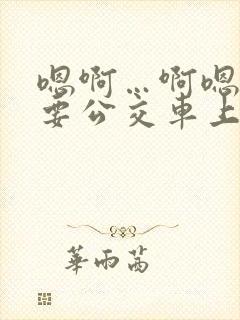 嗯啊…啊嗯
要公交车上
華雨茜